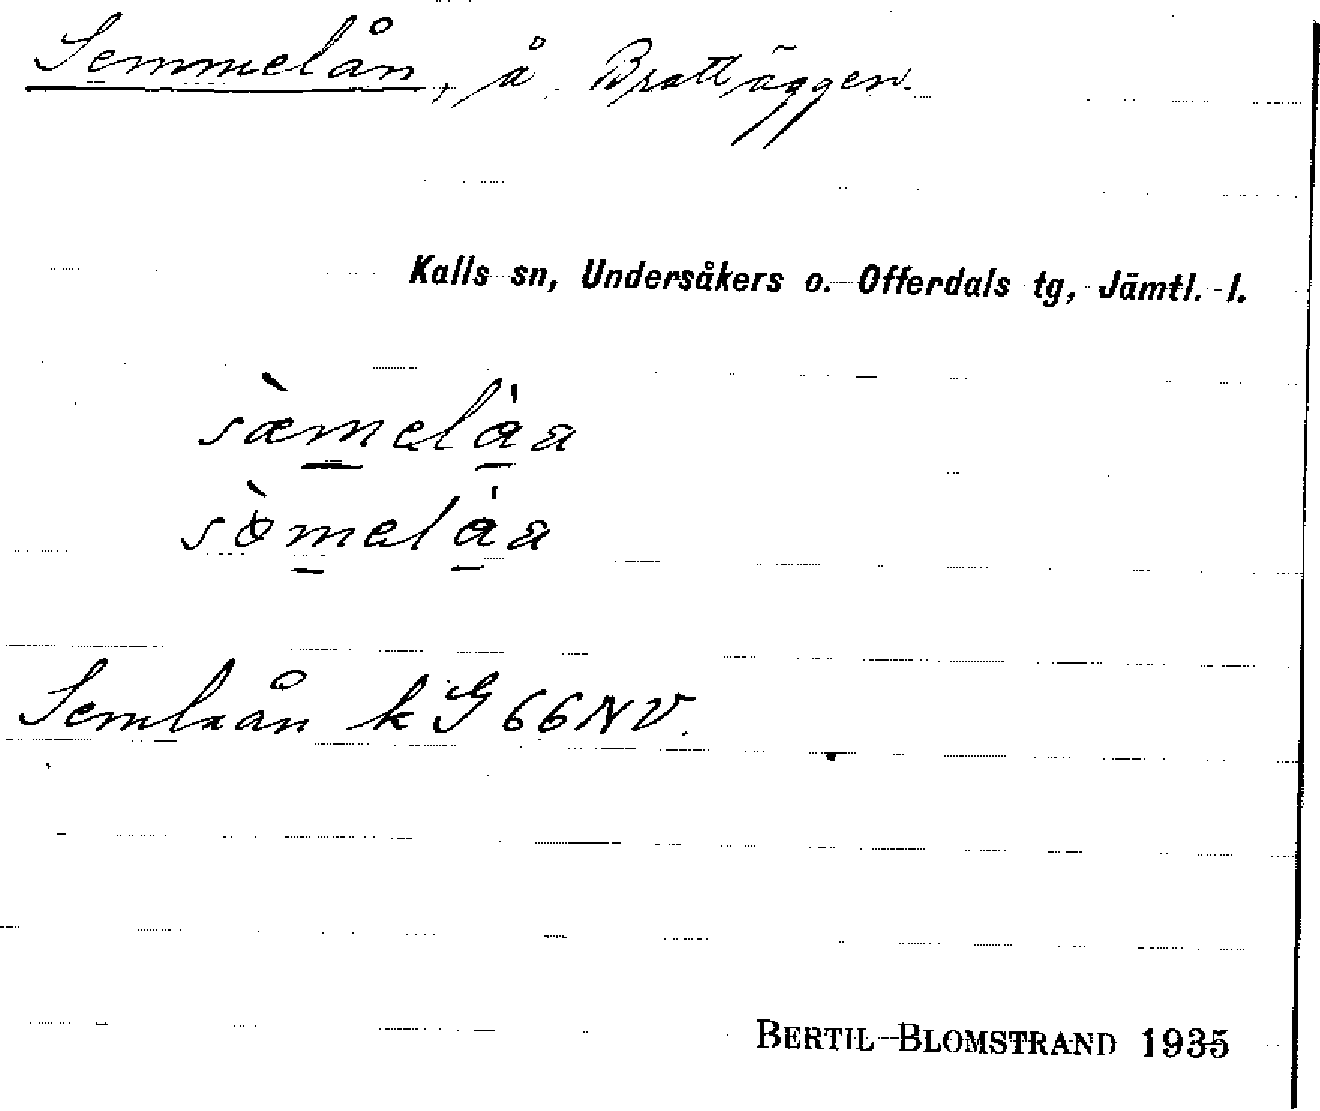 Semmelån, å. Brattäggen.
Kalls sn, Undersåkers o. Offerdals tg, Jämtl. l.
sæ̀melåa
sø̀melåa
Semlaån k G 66 NV.
BERTIL BLOMSTRAND 1935